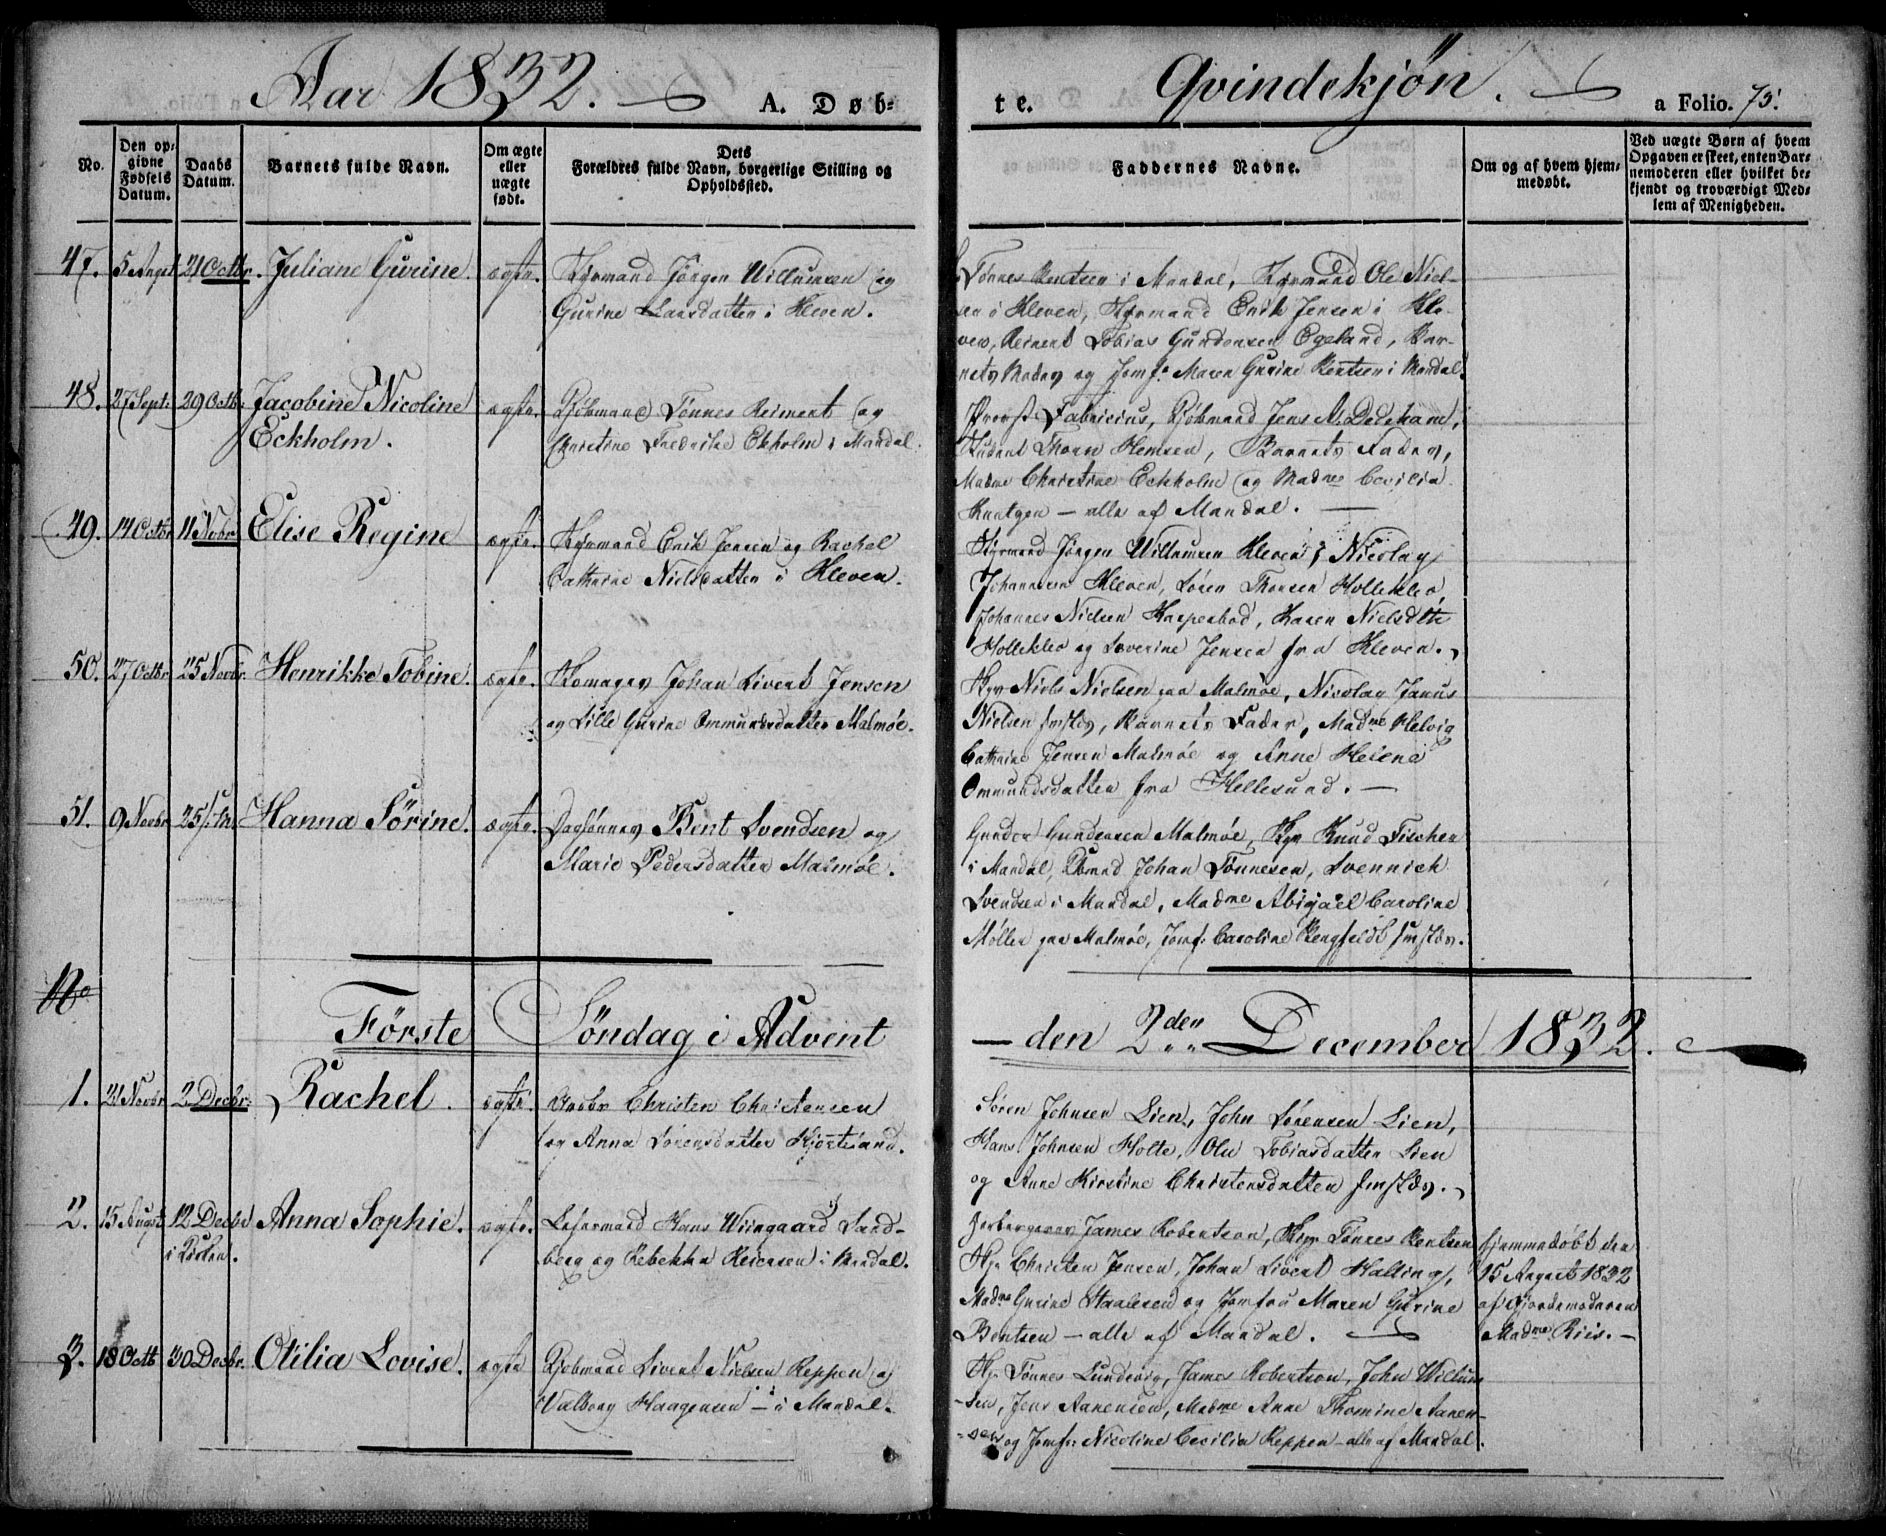 Aar 1832.
A. Døb-
te.
Qvindekjøn.
a Folio. 75.
No.
Den op-
givne
Fødsels
Datum.
Daabs
Datum.
Barnets fulde Navn.
Om ægte
eller
uægte
født.
Dets
Forældres fulde Navn, borgerlige Stilling og
Opholdssted.
Faddernes Navne.
Om og af hvem hjem-
medøbt.
Ved uægte Børn af hvem
Opgaven er skeet, enten Bar-
nemoderen eller hvilket be-
kjendt og troværdigt Med-
lem af Menigheden.
47. 5 Augst 21 Octbr. Juliane Gurine. ægte. Styrmand Jørgen Willumsen og
Gurine Larsdatter i Kleven.
Tønnes Rentsen i Mandal, Styrmand Ole Niel-
sen i Kleven, Styrmand Erik Jensen i Kle-
ven, Reinert Tobias Gundersen Egeland, Bar-
nets Moder og Jomf: Maren Gurine Rentsen i Mandal.
48. 27 Sept: 29 Octb. Jacobine Nicoline
Eckholm.
ægte. Kjøbmand Tønnes Reinert og
Christine Fredrike Ekholm i Mandal.
Provst Fabricius, Kjøbmand Jens A. Dedekam,
Student Thorn Hemsen, Barnets Fader,
Madme Christine Eckholm og Madme Cecilia
Kruntgen — alle af Mandal. —
49. 14 Octbr 11 Novbr. Elise Regine ægte. Styrmand Erik Jensen og Rachel
Cathrine Nielsdatter i Kleven.
Styrmand Jörgen Willumsen Kleven, Nicolay
Johannesen Kleven, Søren Thorsen Holleklev,
Johannes Nielsen Kaspersbod, Karen Nielsdtr
Holleklev og Severine Jensen fra Kleven.
50. 27 Octbr. 25 Novbr. Henrikke Tobine. ægte. Skomager Johan Sivert Jensen
og Sille Gurine Ommundsdatter Malmøe.
Skpr Niels Nielsen paa Malmøe, Nicolay Janus
Nielsen smstdz, Barnets Fader, Madme Helvig
Cathrine Jensen Malmøe og Anne Helena
Ommundsdatter fra Hellesund. —
51. 9 Novbr 25 Hanna Sørine. ægte. Daglønner Bent Svendsen og
Marie Pedersdatter Malmøe.
Gunder Gundersen Malmøe, Skpr Knud Fischer
i Mandal, Johan Tönnesen, Svennich
Svendsen i Mandal, Madme Abigael Caroline
Möller paa Malmøe, Jomf: Caroline Bengfeldt smstdz.
No
Første Søndag i Advent
— den 2den December 1832.
1. 21 Novbr 2 Decbr: Rachel. ægte. Grdbr Christen Christensen
og Anna Sørensdatter Hjortesand.
Søren Johnsen Lien, John Sørensen Lien,
Hans Johnsen Holte, Olu Tobiasdatter Lien
og Anne Kirstine Christensdatter smstdz.
2. 15 Augst 12 Decbr
i Kirken.
Anna Sophie. ægte. Løsermand Hans Wiingaard Sand-
berg og Rebekka Reiersen i Mandal.
Herbergerer James Robertson, Skpr Tønnes Rentsen
Skpr Christen Jensen, Johan Sivert Halling,
Madme Gurine Staalesen og Jomfru Maren Gurine
Bentsen — alle af Mandal. —
hjemmedøbt den
15 August 1832
af Gjordemoderen
Madme Riis. —
3. 18 Octb 30 Decbr. Otilia Lovise. ægte Kjøbmand Sivert Nielsen Reppen og
Walborg Haagensen — i Mandal.
Skpr Tønnes Lundevig, James Robertson, John Willum-
sen, Jens Aanensen, Madme Anne Thomine Aanen-
sen og Jomfr: Nicoline Cecilia Reppen — alle af Mandal.